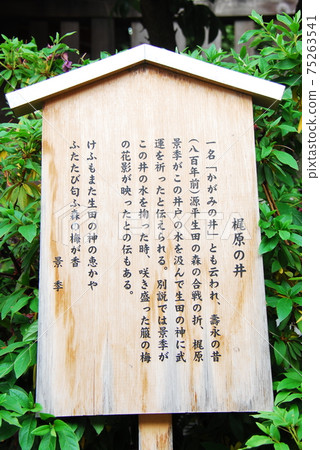 梶原の井
一名「かがみの井」とも云われ、壽永の昔
(八百年前)源平生田の森の合戦の折、梶原
景季がこの井戸の水を汲んで生田の神に武
運を祈ったと伝えられる。別説では景季が
この井の水を掬った時、咲き盛った箙の梅
の花影が映ったとの伝もある。
けふもまた生田の神の恵かや
ふたたび匂ふ森の梅が香
景季
75263541